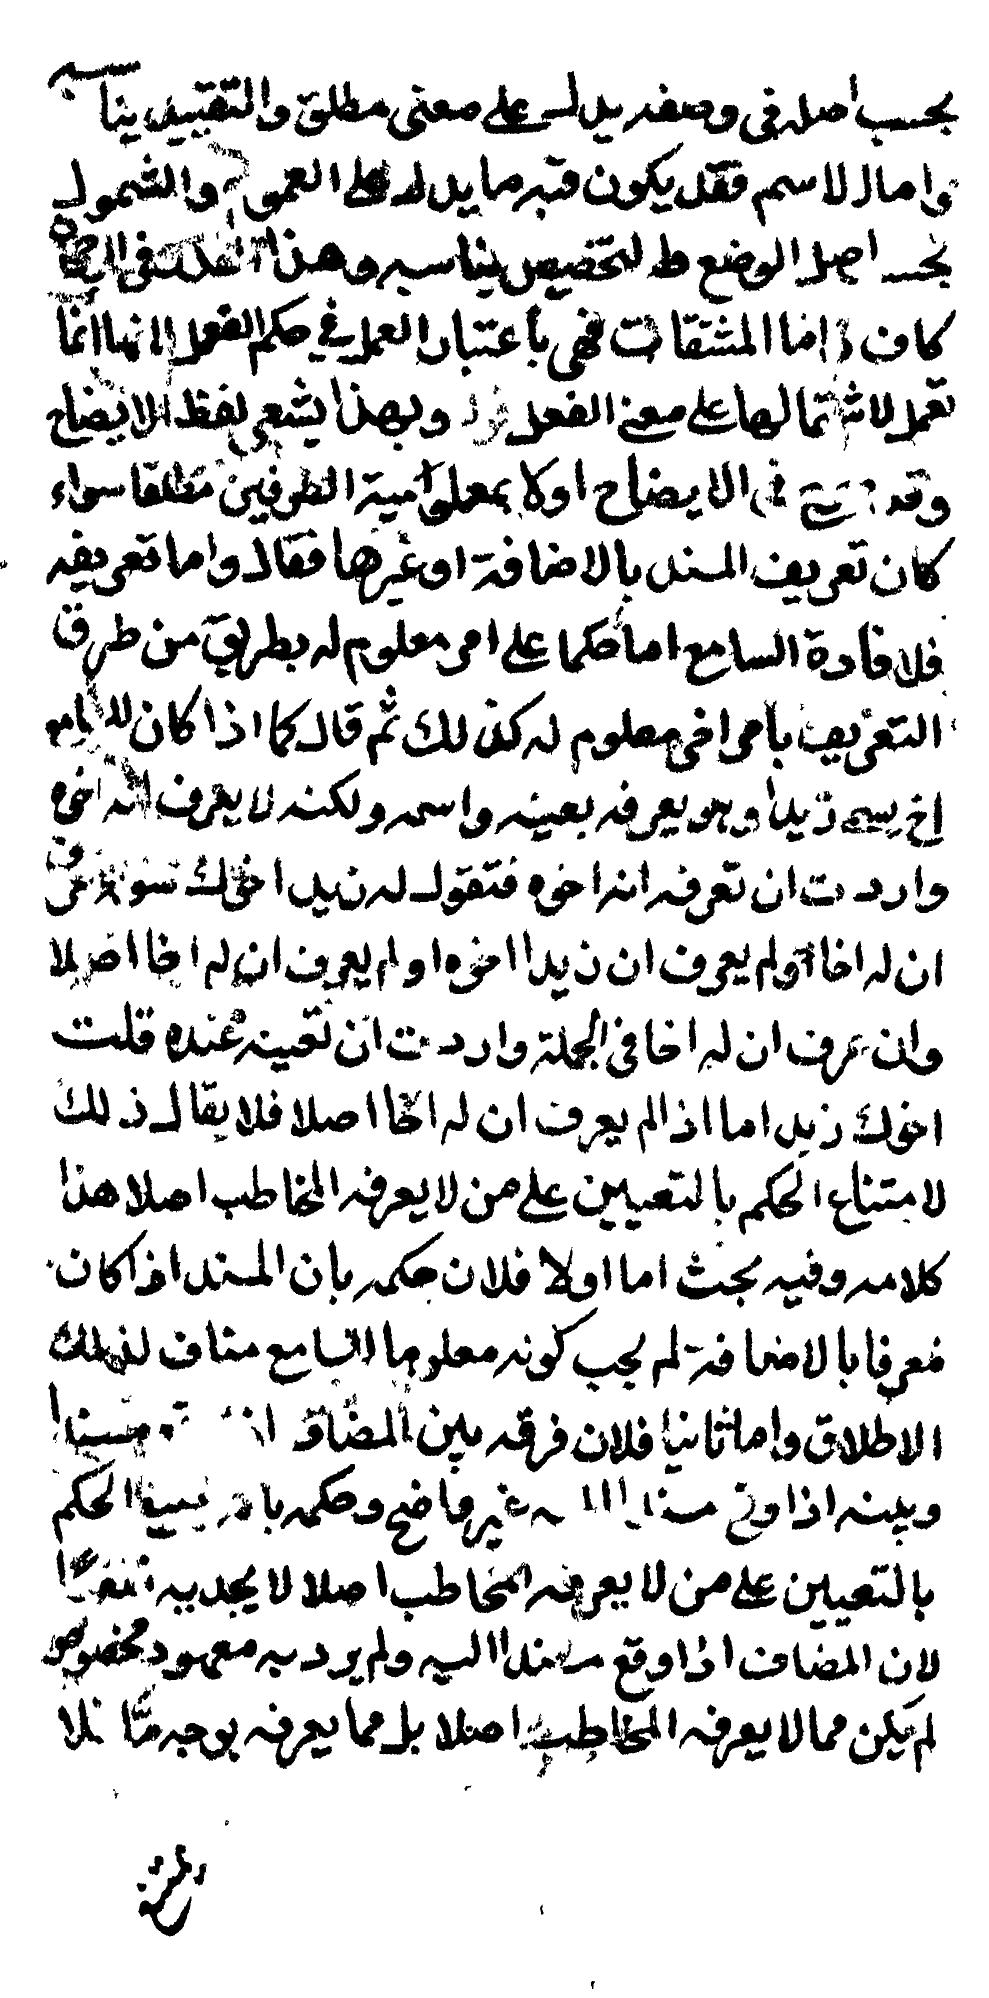 بحسب اصله في وصفه يدل على معنى مطلق والتقييد يناسبه
واما الاسم فقد يكون فيه ما يدل على العموم والشمول
بحسب اصل الوضع فالتخصيص يناسبه وهذا القدر في
كاف واما المشتقات فهي باعتبار العمل في حكم الفعل لانها انما
تعمل لاشتمالها على معنى الفعل وبهذا يشعر لفظ الايضاح
وقد في الايضاح اولا بمعلومية الطرفين مطلقا سواء
كان تعريف المسند بالاضافة او غيرها فقال واما تعريفه
فلافادة السامع اما حكما على امر معلوم له بطريق من طرق
التعريف بامر اخر معلوم له كذلك ثم قال كما اذا كان للسامع
اخ يسمى زيدا وهو يعرفه بعينه واسمه ولكنه لا يعرف انه اخوه
واردت ان تعرفه انه اخوه فتقول له زيد اخوك سواء عرف
ان له اخا ولم يعرف ان زيدا اخوه او لم يعرف ان له اخا اصلا
وان عرف ان له اخا في الجملة واردت ان تعينه عنده قلت
اخوك زيد اما اذا لم يعرف ان له اخا اصلا فلا يقال ذلك
لامتناع الحكم بالتعيين على من لا يعرفه المخاطب اصلا هذا
كلامه وفيه بحث اما اولا فلان حكمه بان المسند اذا كان
معرفا بالاضافة لم يجب كونه معلوما للسامع مناف لذلك
الاطلاق واما ثانيا فلان فرقه بين المضاف اذا مسندا
وبينه اذا وقع مسندا اليه غير واضح وحكمه بامتناع الحكم
بالتعيين على من لا يعرفه المخاطب اصلا لا يجديه نفعا
لان المضاف اذا وقع مسندا اليه ولم يرد به معهود مخصوص
لم يكن مما لا يعرفه المخاطب اصلا بل مما يعرفه بوجه ما